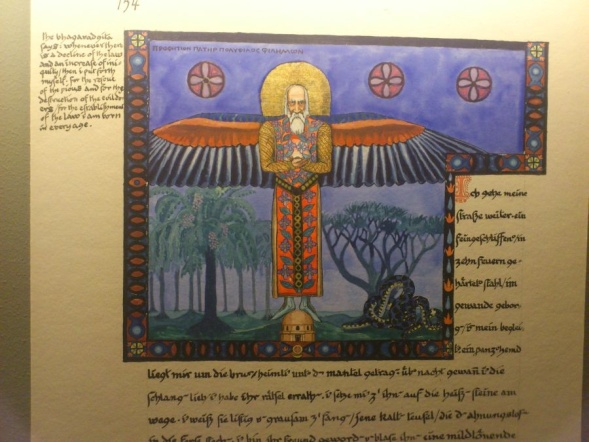 154
the bhagavadgita
says: whenever there
is a decline of the law
and an increase of ini-
quity / then i put forth
myself. for the rescue
of the pious and for the
destruction of the evildo-
ers / for the establishment
of the law i am born
in every age.
ΠΡΟΦΗΤΩΝ ΠΑΤΗΡ ΠΟΛΥΦΙΛΟΣ ΦΙΛΗΜΩΝ
Ich gehe meine
straße weiter. ein
feingeschliffen'/in
zehn feuern ge-
härtet' stahl/im
gewande gebor-
g'/ mein beglei-
t'. ein panzerhemd
liegt mir um die brust/heimli' unt' d' mantel getrag'. üb' nacht gewan' i' die
schlang' lieb/i' habe ihr' räthsel errath'. i' setze mi' z' ihn' auf die heiß' steine am
wege. i' weiß sie listig u' grausam z' fang'/jene kalt' teufel/die d' ahnungslos'
in die ferse i' bin ihr freund geword' u' blase ihn' eine mildtönende